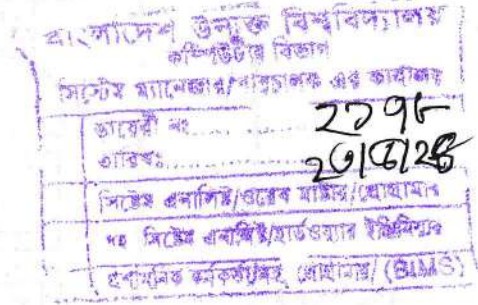 বাংলাদেশ উন্মুক্ত বিশ্ববিদ্যালয়
কম্পিউটার বিভাগ
সিস্টেম ম্যানেজার/পরিচালক এর কার্যালয়
ডায়েরী নং........ ২১৭৮
তারিখঃ........
সিস্টেম এনালিষ্ট/ওয়েব মাষ্টার/প্রোগ্রামার
সহ সিস্টেম এনালিষ্ট/হার্ডওয়্যার ইঞ্জিনিয়ার
প্রশাসনিক কর্মকর্তা/সহ. প্রোগ্রামার/ (BIMS)